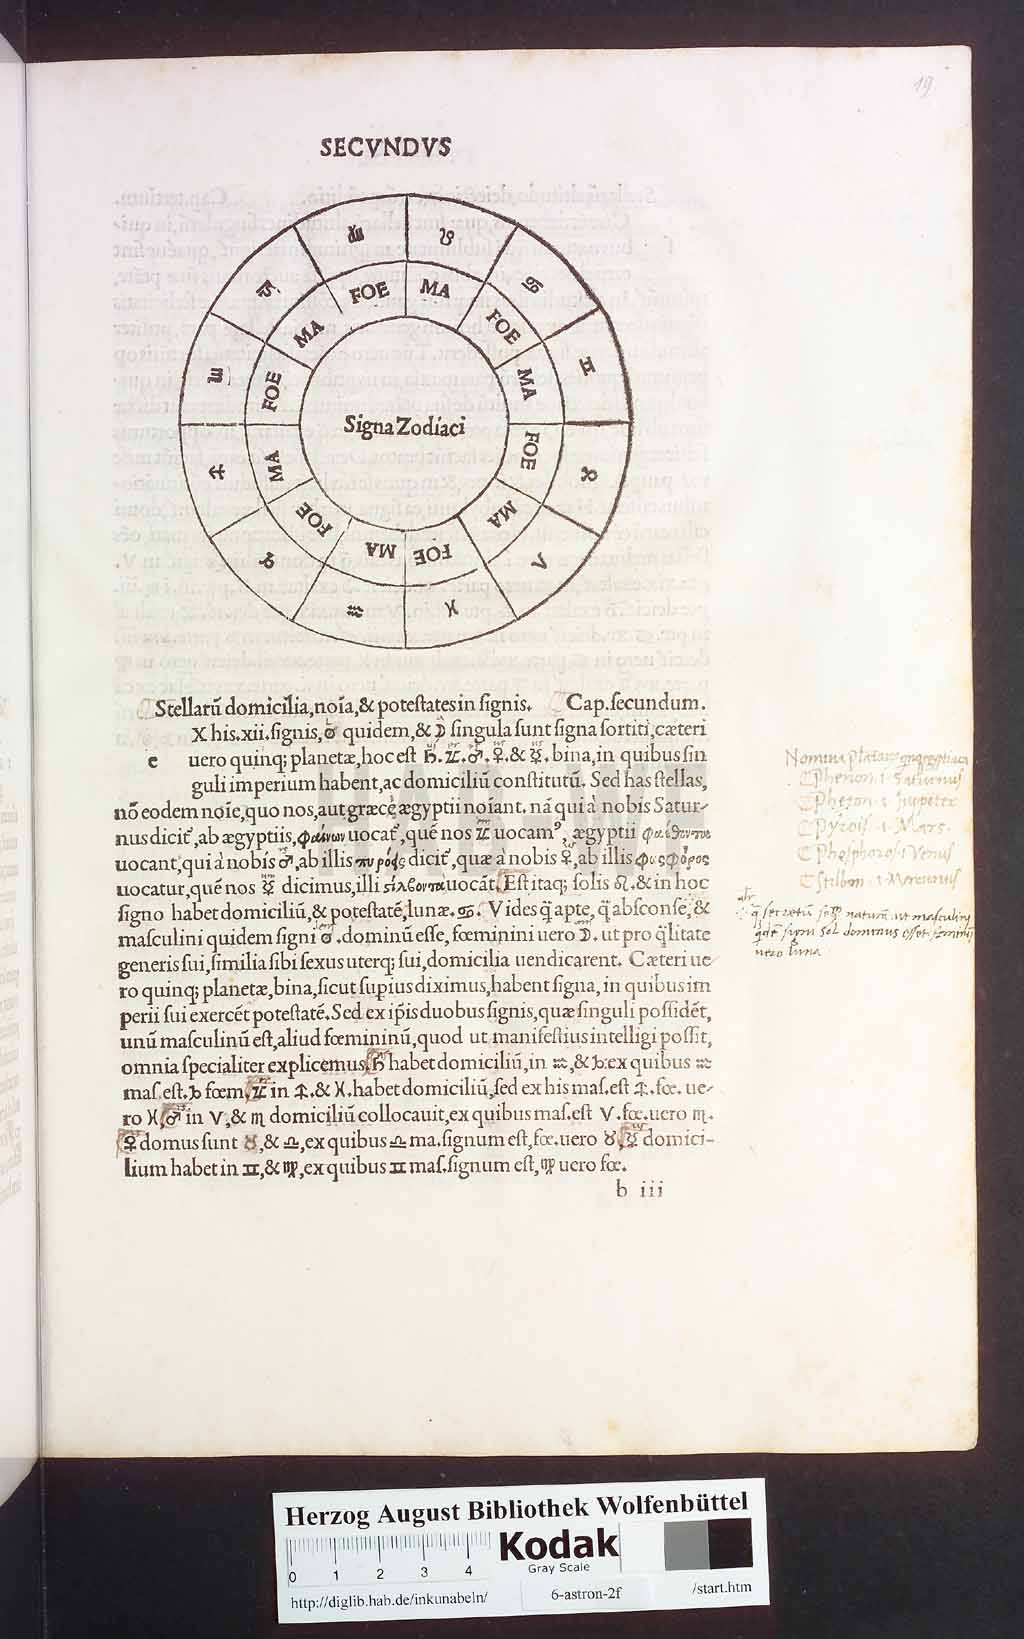 19
SECVNDVS
♍ ♌ ♋ ♊ ♉ ♈ ♓ ♒ ♑ ♐ ♏ ♎
FOE MA FOE MA FOE MA FOE MA FOE MA FOE MA
Signa Zodiaci
Stellarū domicilia, noīa, & potestates in signis. Cap. secundum.
X his. xii. signis, quidem, & ☽ singula sunt signa sortiti, cæteri
e uero quinq; planetæ, hoc est ♄. ♃. ♂. ♀. & ☿. bina, in quibus sin
guli imperium habent, ac domiciliū constitutū. Sed has stellas,
nō eodem noīe, quo nos, aut græcę, ægyptii noīant. nā qui à nobis Satur-
nus dicit᷑, ab ægyptiis, φαίνων uocat᷑, quē nos ♃ uocamꝰ, ægyptii
uocant, qui à nobis ♂, ab illis dicit᷑, quæ à nobis ♀, ab illis φωσφόρος
uocatur, quē nos ☿ dicimus, illi uocāt. Est itaq; solis ♌. & in hoc
signo habet domiciliū, & potestatē, lunæ. ♋. Vides q̃ apte, q̃ absconse, &
masculini quidem signi . dominū esse, fœminini uero ☽. ut pro q̃litate
generis sui, similia sibi sexus uterq; sui, domicilia uendicarent. Cæteri ue
ro quinq; planetæ, bina, sicut supius diximus, habent signa, in quibus im
perii sui exercēt potestatē. Sed ex ip̄is duobus signis, quæ singuli possidēt,
unū masculinū est, aliud fœmininū, quod ut manifestius intelligi possit,
omnia specialiter explicemus. ♄ habet domiciliū, in ♒, & ♑. ex quibus ♒
mas. est. ♑ fœm. ♃ in ♐. & ♓. habet domiciliū, sed ex his mas. est ♐. fœ. ue-
ro ♓. ♂ in ♈, & ♏ domiciliū collocauit, ex quibus mas. est ♈. fœ. uero ♏.
♀ domus sunt ♉, & ♎, ex quibus ♎ ma. signum est, fœ. uero ♉. ☿ domici-
lium habet in ♊, & ♍, ex quibus ♊ mas. signum est, ♍ uero fœ.
b iii
Nomina
Phenon .i. Saturnus
Pheton .i. Jupiter
Pyrois .i. Mars.
Phosphoros .i. Venus
Stilbon .i. Mercurius
naturæ ut masculini
signi Sol dominus esset
uero luna
HAB-WF
Herzog August Bibliothek Wolfenbüttel
0 1 2 3 4
Kodak
Gray Scale
http://diglib.hab.de/inkunabeln/ 6-astron-2f /start.htm